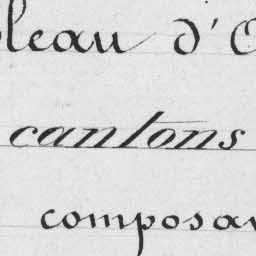 bleau d'O
cantons
composan